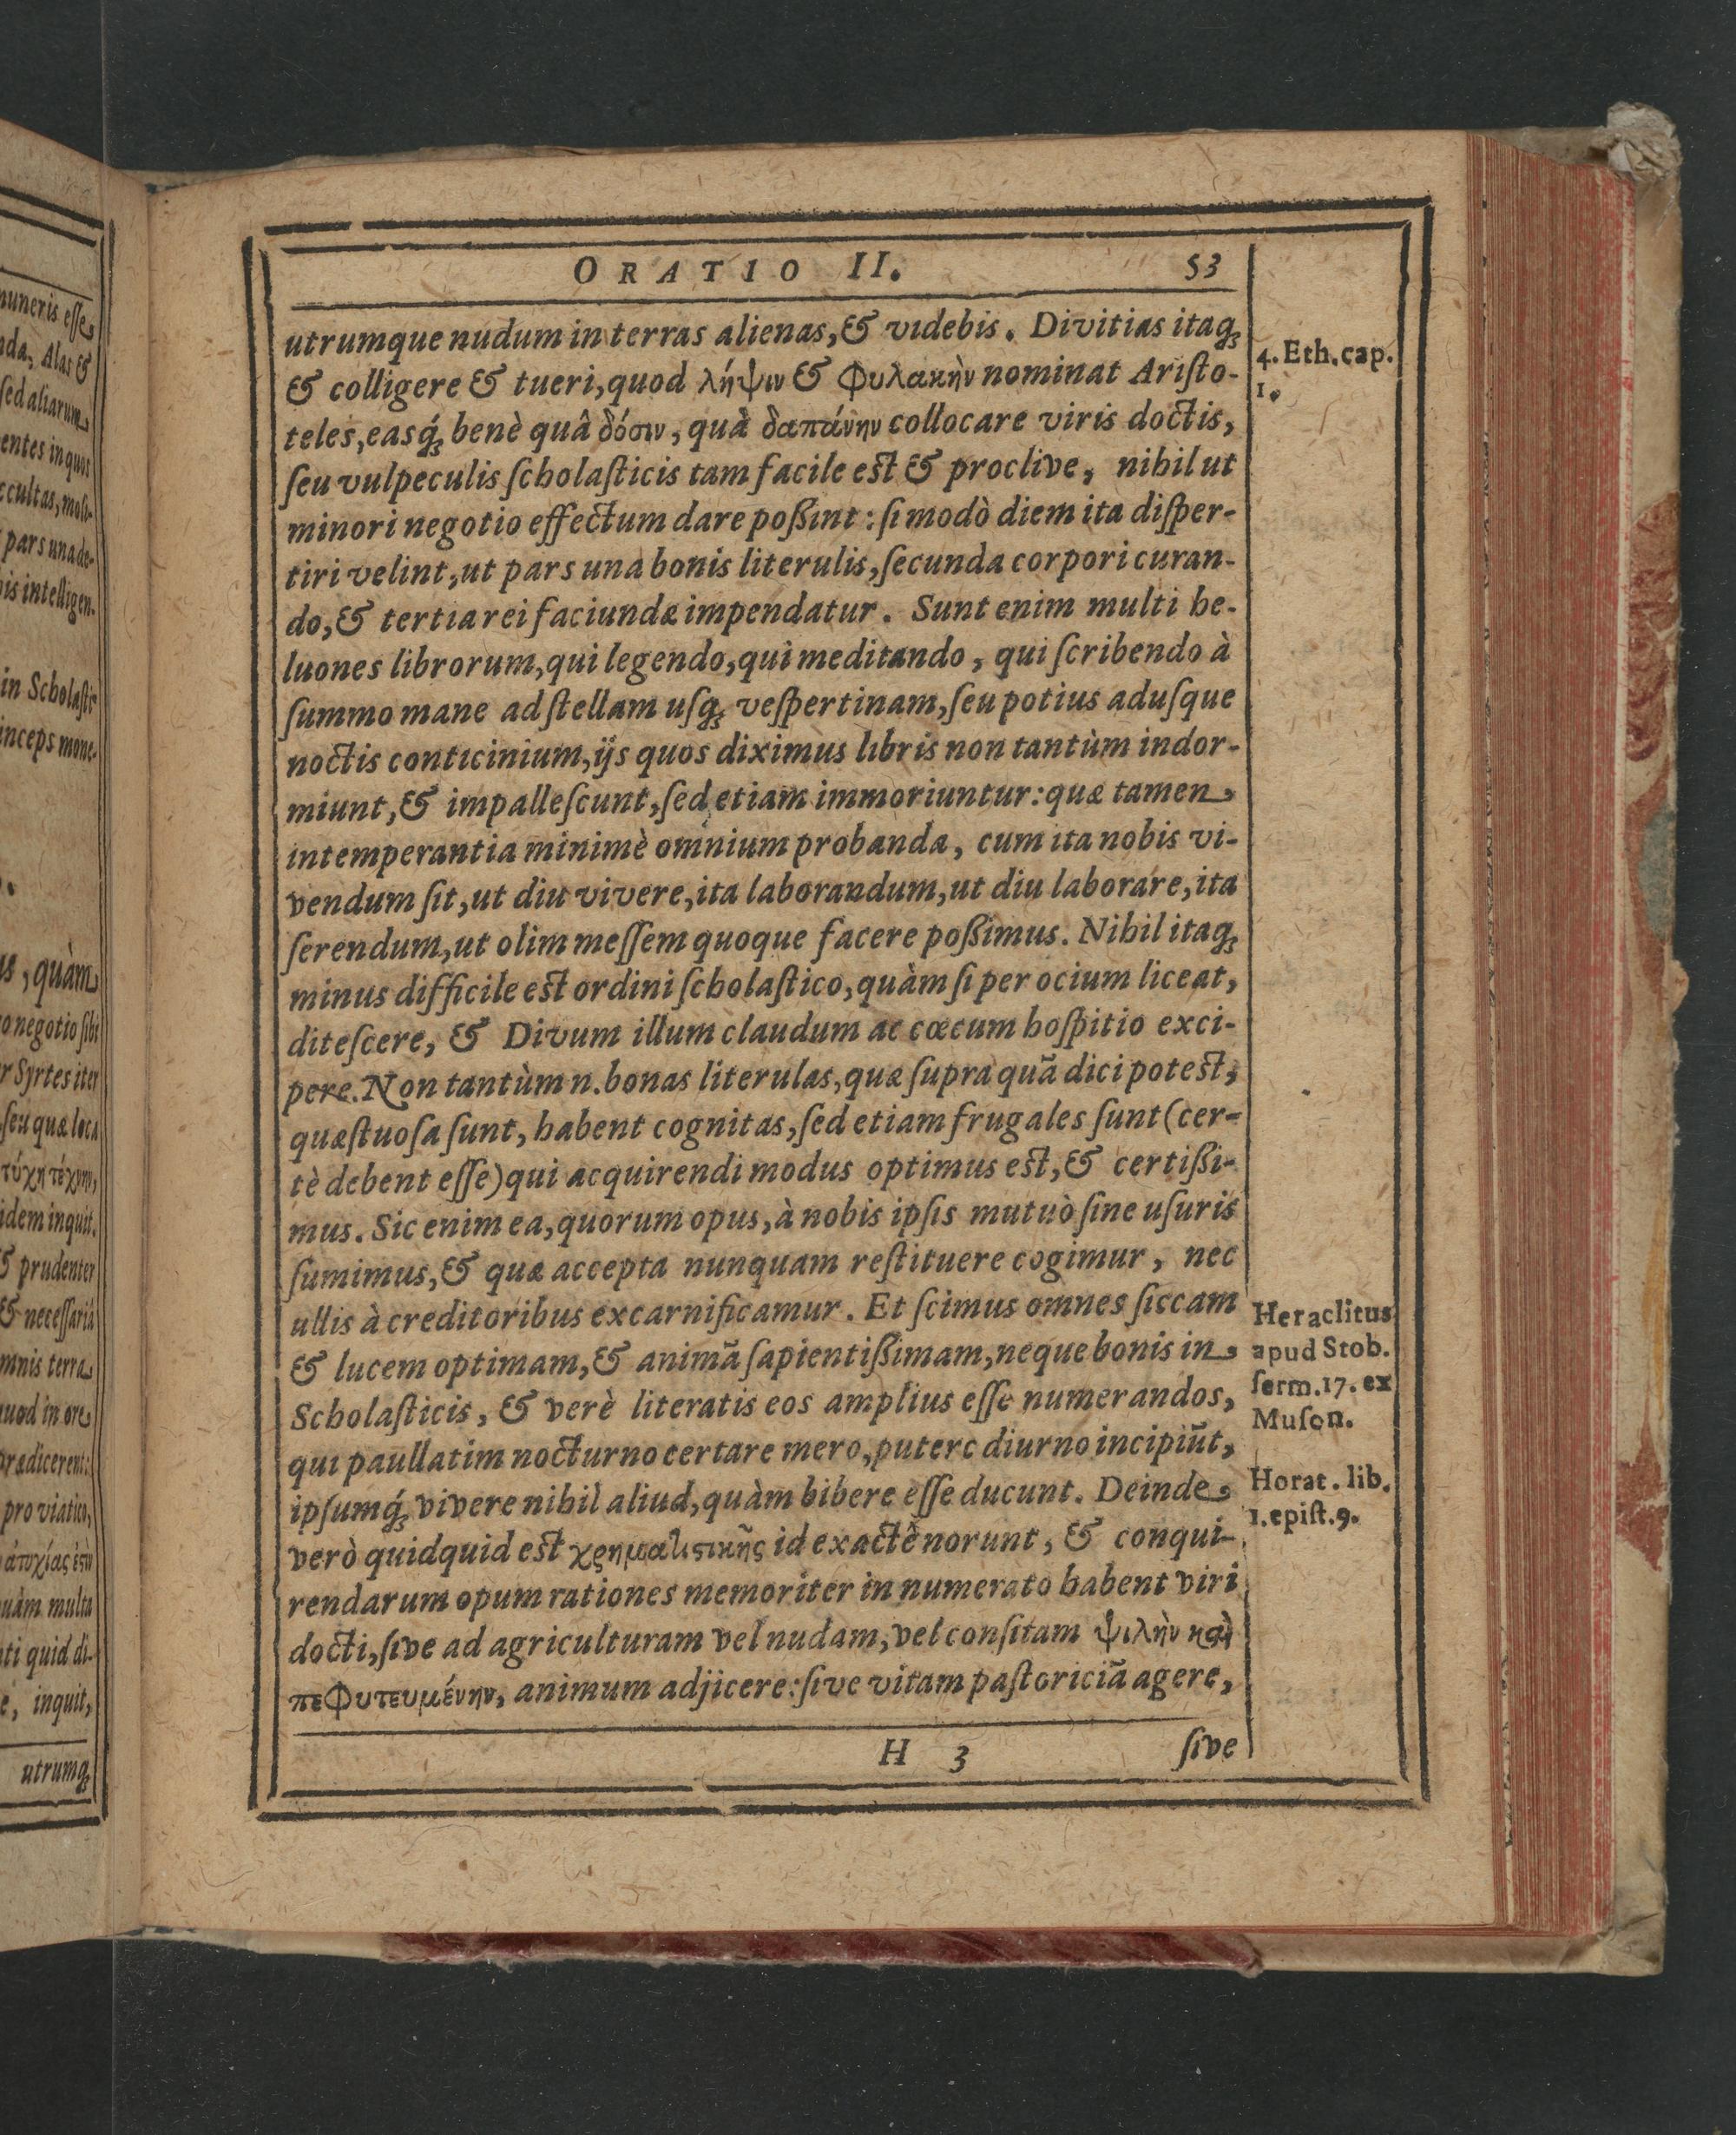 ORATIO II. 53
utrumque nudum in terras alienas, & videbis. Divitias itaq;
& colligere & tueri, quod λήψιν & φυλακὴν nominat Aristo-
teles, easq́; benè quâ δόσιν, quà δαπάνην collocare viris doctis,
seu vulpeculis scholasticis tam facile est & proclive, nihil ut
minori negotio effectum dare poßint: si modò diem ita disper-
tiri velint, ut pars una bonis literulis, secunda corpori curan-
do, & tertia rei faciundæ impendatur. Sunt enim multi he-
luones librorum, qui legendo, qui meditando, qui scribendo à
summo mane ad stellam usq; vespertinam, seu potius adusque
noctis conticinium, ijs quos diximus libris non tantùm indor-
miunt, & impallescunt, sed etiam immoriuntur: quæ tamen
intemperantia minimè omnium probanda, cum ita nobis vi-
vendum sit, ut diu vivere, ita laborandum, ut diu laborare, ita
serendum, ut olim messem quoque facere poßimus. Nihil itaq;
minus difficile est ordini scholastico, quàm si per ocium liceat,
ditescere, & Divum illum claudum ac cœcum hospitio exci-
pere. Non tantùm n. bonas literulas, quæ supra quã dici potest,
quæstuosa sunt, habent cognitas, sed etiam frugales sunt (cer-
tè debent esse) qui acquirendi modus optimus est, & certißi-
mus. Sic enim ea, quorum opus, à nobis ipsis mutuò sine usuris
sumimus, & quæ accepta nunquam restituere cogimur, nec
ullis à creditoribus excarnificamur. Et scimus omnes siccam
& lucem optimam, & animã sapientißimam, neque bonis in
Scholasticis, & verè literatis eos amplius esse numerandos,
qui paullatim nocturno certare mero, putere diurno incipiũt,
ipsumq́; vivere nihil aliud, quàm bibere esse ducunt. Deinde
verò quidquid est χρηματιστικῆς id exactè norunt, & conqui-
rendarum opum rationes memoriter in numerato habent viri
docti, sive ad agriculturam vel nudam, vel consitam ψιλὴν καὶ
πεφυτευμένην, animum adjicere: sive vitam pastoriciã agere,
H 3 sive
4. Eth. cap.
1.
Heraclitus
apud Stob.
serm. 17. ex
Muson.
Horat. lib.
1. epist. 9.
muneris esse
nda, Alas &
sed aliarum
entes in quos
pars una do-
is intelligen-
in Scholasti-
inceps mone-
us, quàm
o negotio sibi
r Syrtes iter
seu quæ loca
τύχη τέχνην,
idem inquit.
& prudenter
& necessaria
mnis terra
uod in ore
prædicerent:
pro viatico,
uàm multa
ti quid di-
e, inquit,
utrumq;